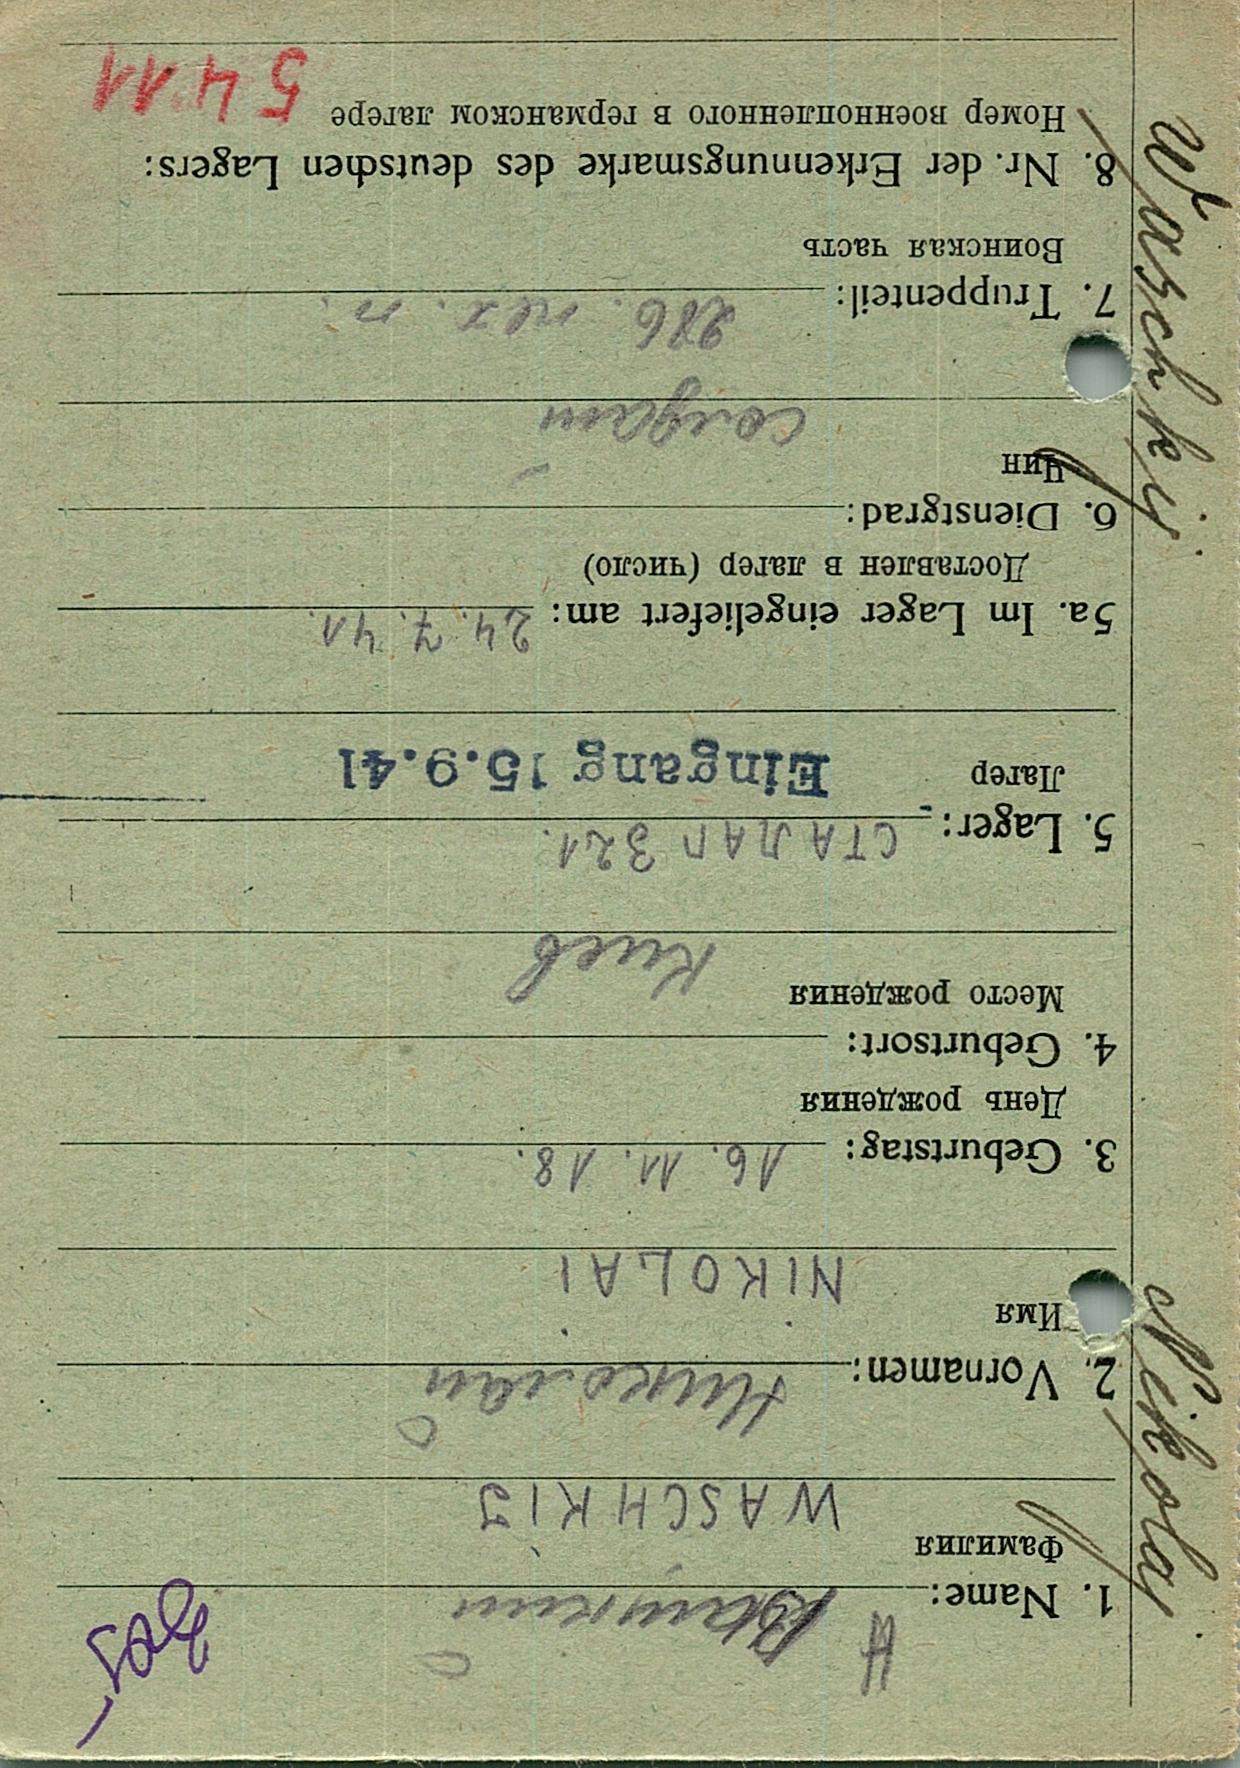 1. Name: Вашкий
Фамилия
WASCHKIJ
2. Vornamen: Николай
Имя
NIKOLAI
3. Geburtstag: 16. 11. 18.
День рождения
4. Geburtsort:
Место рождения
Киев
5. Lager: СТАЛАГ 321.
Лагер
Eingang 15.9.41
5a. Im Lager eingeliefert am: 24. 7. 41.
Доставлен в лагер (число)
6. Dienstgrad:
Чин
солдат
7. Truppenteil: 286. пех. п.
Воинская часть
8. Nr. der Erkennungsmarke des deutschen Lagers:
Номер военнопленного в германском лагере 5411
Waschkij
Nikolaj